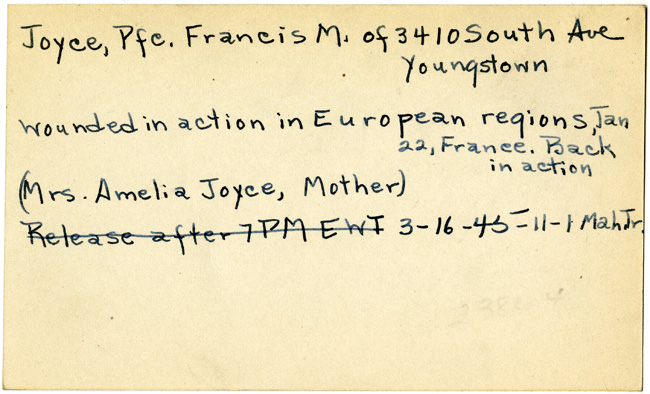 Joyce, Pfc. Francis M. of 3410 South Ave
Youngstown
wounded in action in European regions, Jan
22, France. Back
in action
(Mrs. Amelia Joyce, Mother)
Release after 7PM EWT 3-16-45-11-1 Mah.Tr.